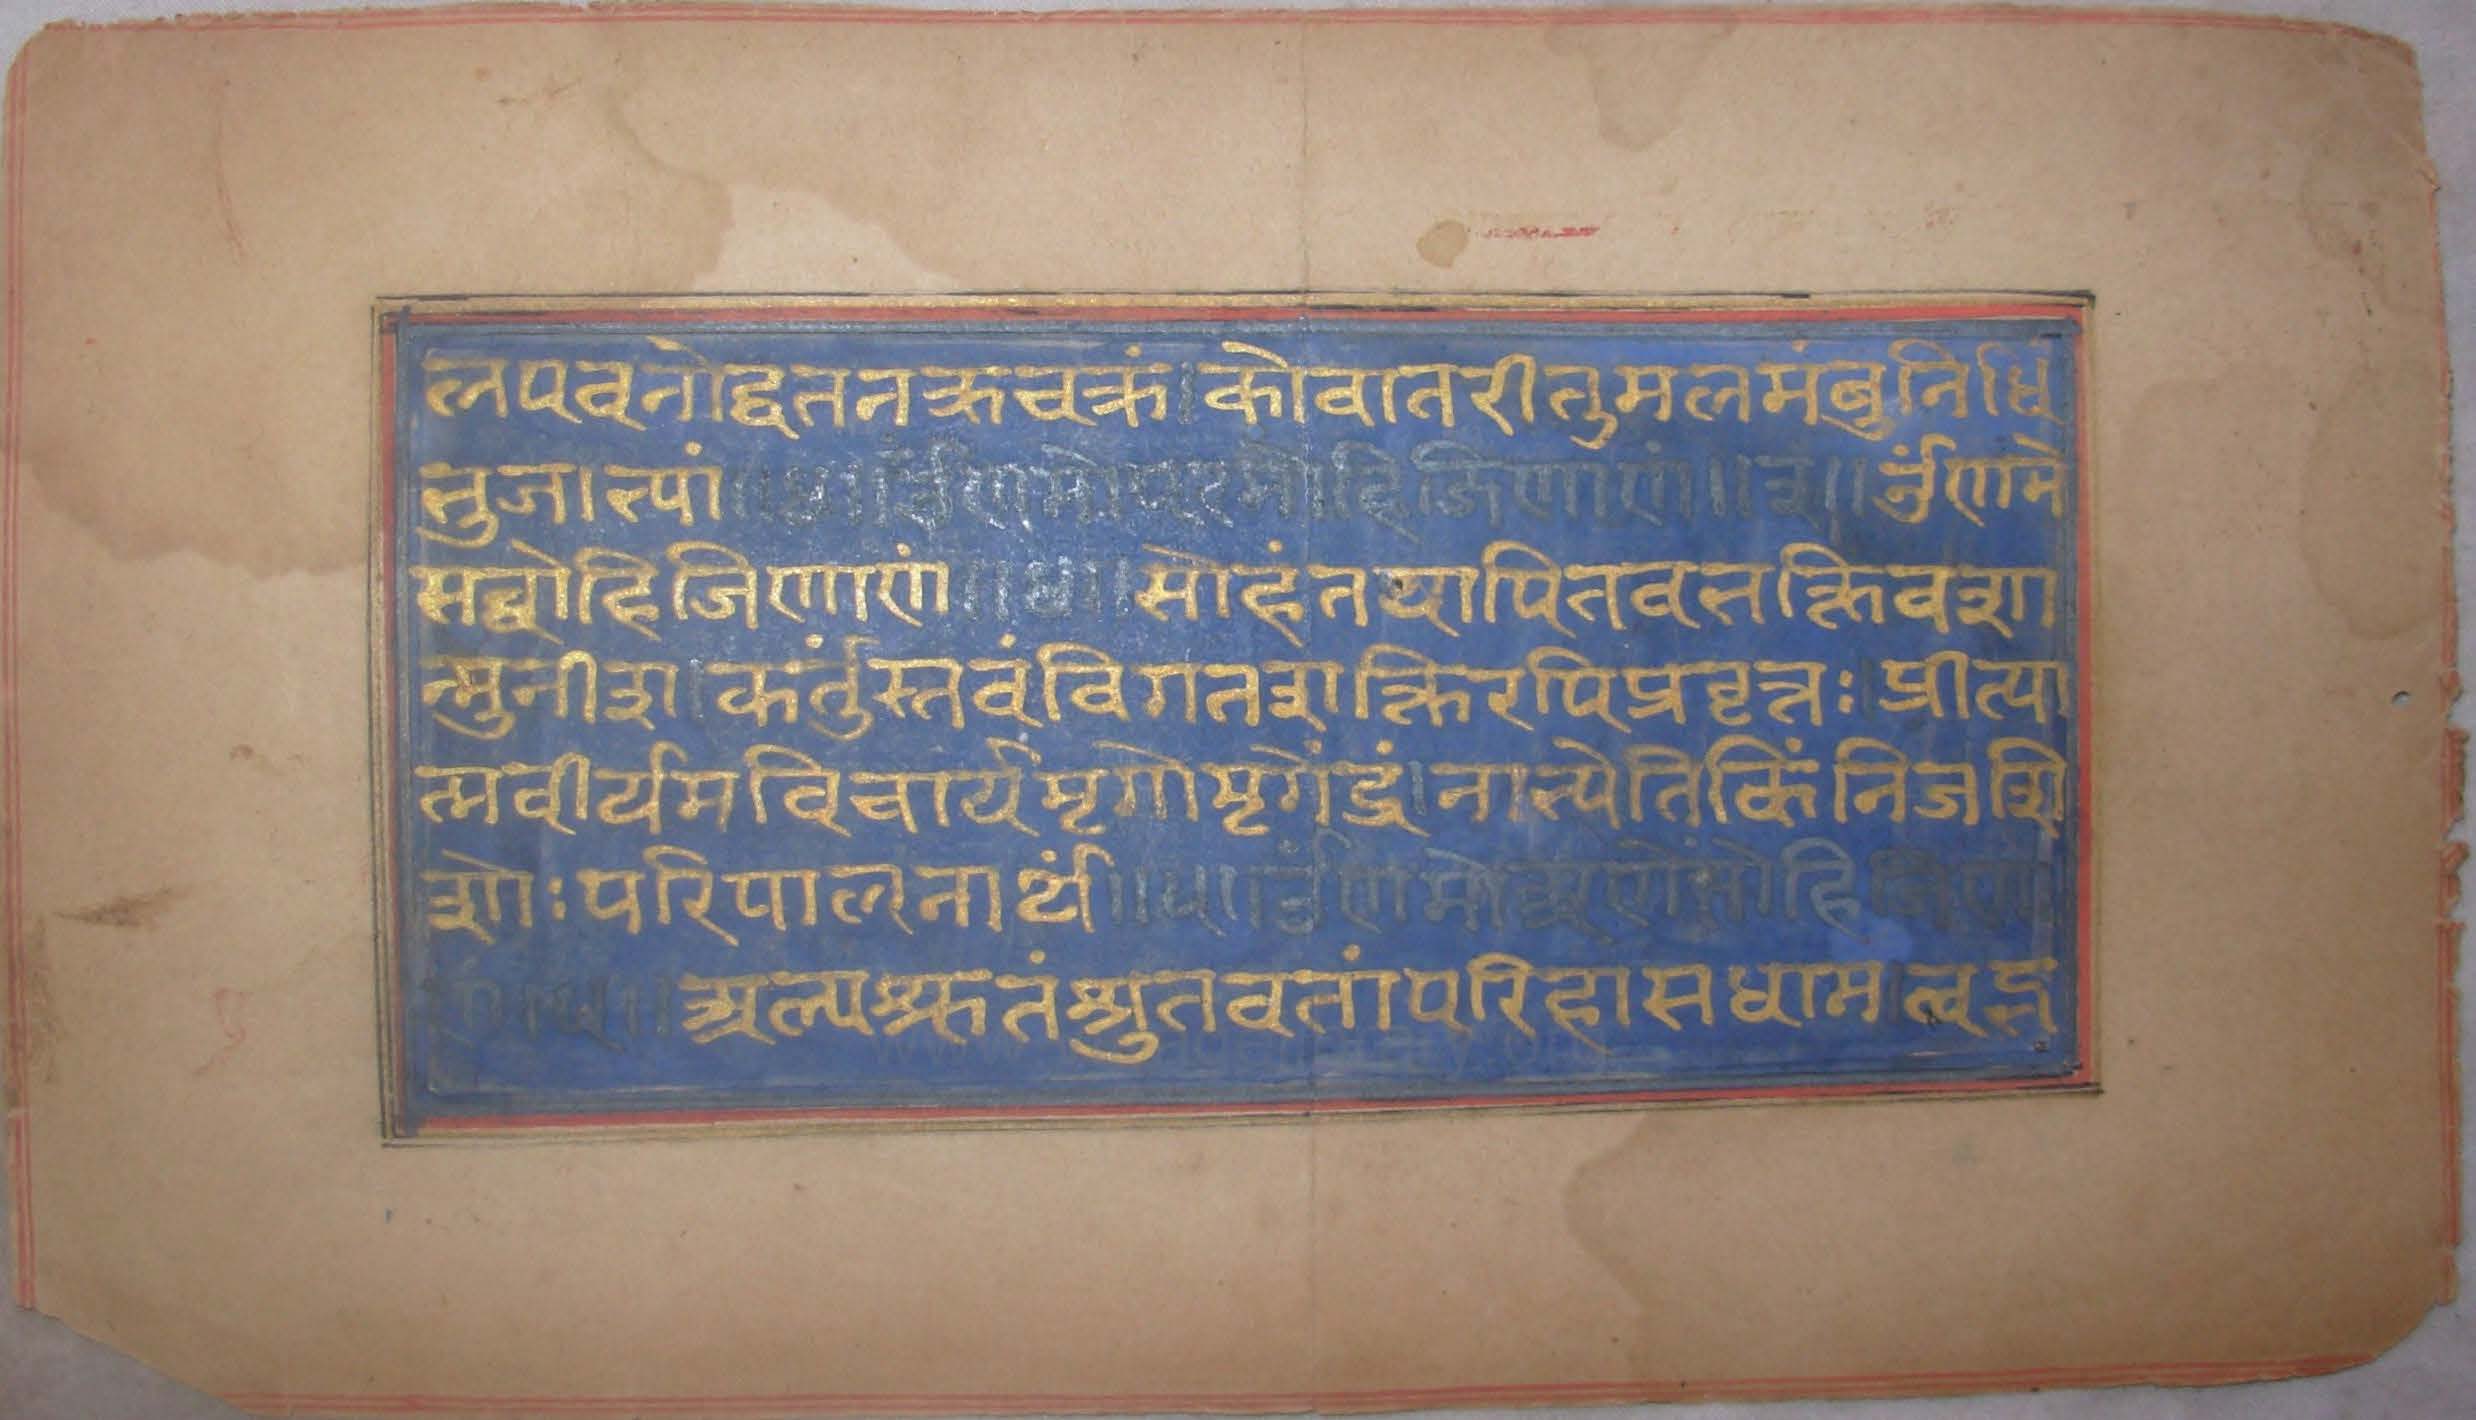 लपवनोद्धतनक्रचक्रं। कोवातरीतुमलमंबुनिधिं
भुजाभ्यां ॥४॥ र्नुणमो परमोहिजिणाणं ॥ र्नुणमो
सव्वोहिजिणाणं ॥४॥ सोहंतथापितवभक्तिवशा
न्मुनीश। कर्तुंस्तवंविगतशक्तिरपिप्रवृत्तः। प्रीत्या
त्मवीर्यमविचार्यमृगोमृगेंद्रं। नाभ्येतिकिंनिजशि
शोःपरिपालनार्थं ॥५॥ र्नुणमो मोहिजिणा
णं ॥५॥ अल्पश्रुतंश्रुतवतांपरिहासधाम। त्वद्भ